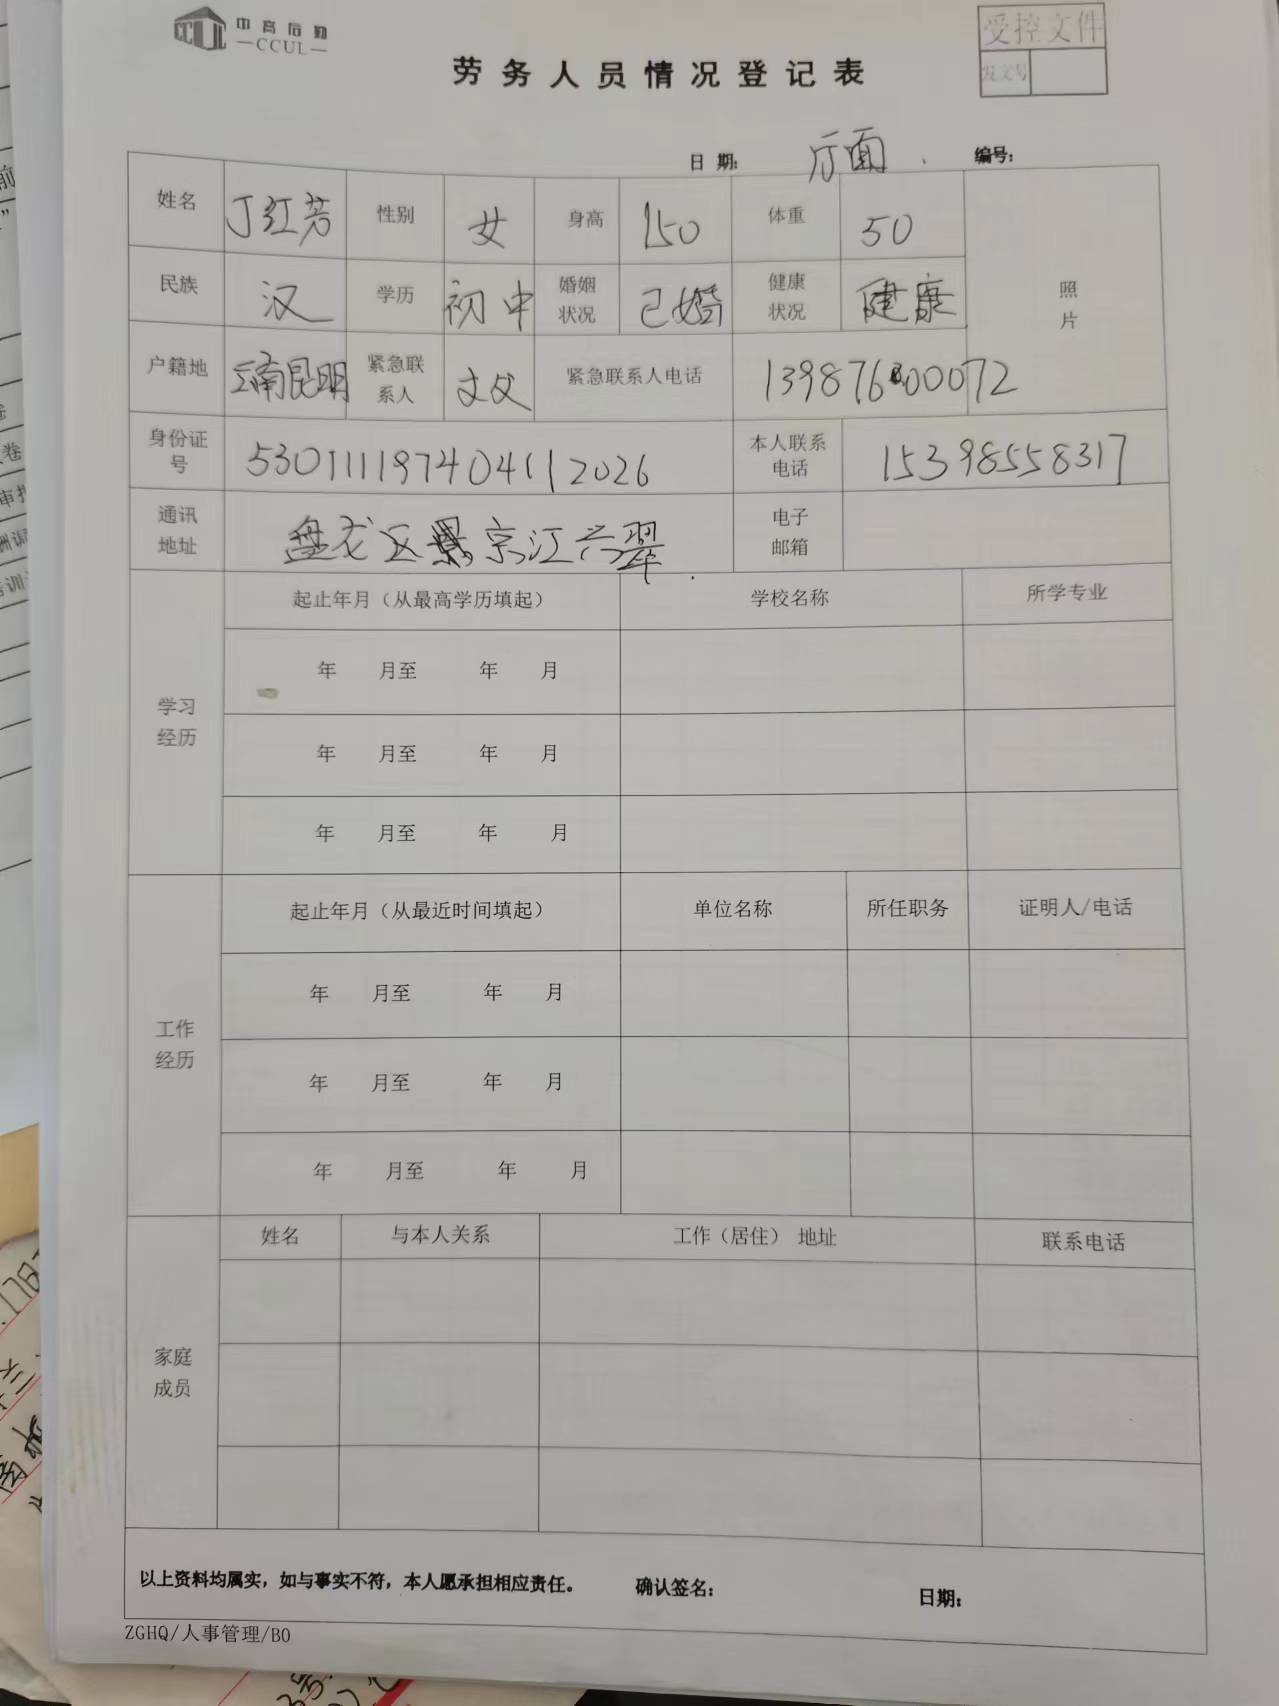 中高后勤
CCUL
受控文件
发文号
劳务人员情况登记表
日期： 厅面 编号：
姓名 丁红芳 性别 女 身高 150 体重 50
民族 汉 学历 初中 婚姻状况 已婚 健康状况 健康 照片
户籍地 云南昆明 紧急联系人 丈夫 紧急联系人电话
身份证号 530111197404112026 本人联系电话 15398558317
通讯地址 盘龙区 京江 翠 电子邮箱
学习经历 起止年月（从最高学历填起） 学校名称 所学专业
年 月至 年 月
年 月至 年 月
年 月至 年 月
工作经历 起止年月（从最近时间填起） 单位名称 所任职务 证明人/电话
年 月至 年 月
年 月至 年 月
年 月至 年 月
家庭成员 姓名 与本人关系 工作（居住） 地址 联系电话
以上资料均属实，如与事实不符，本人愿承担相应责任。 确认签名： 日期：
ZGHQ/人事管理/B0